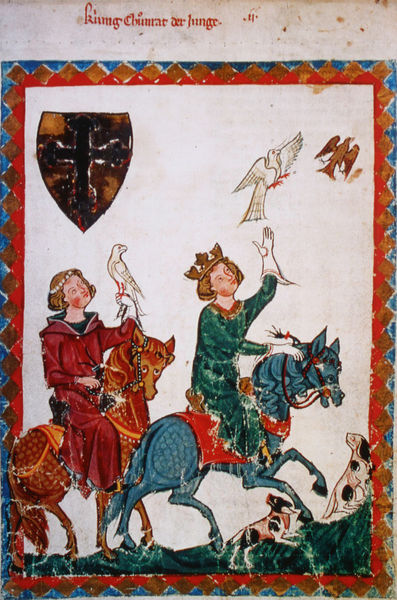 kúnig Chůnrat der Junge. .ii.